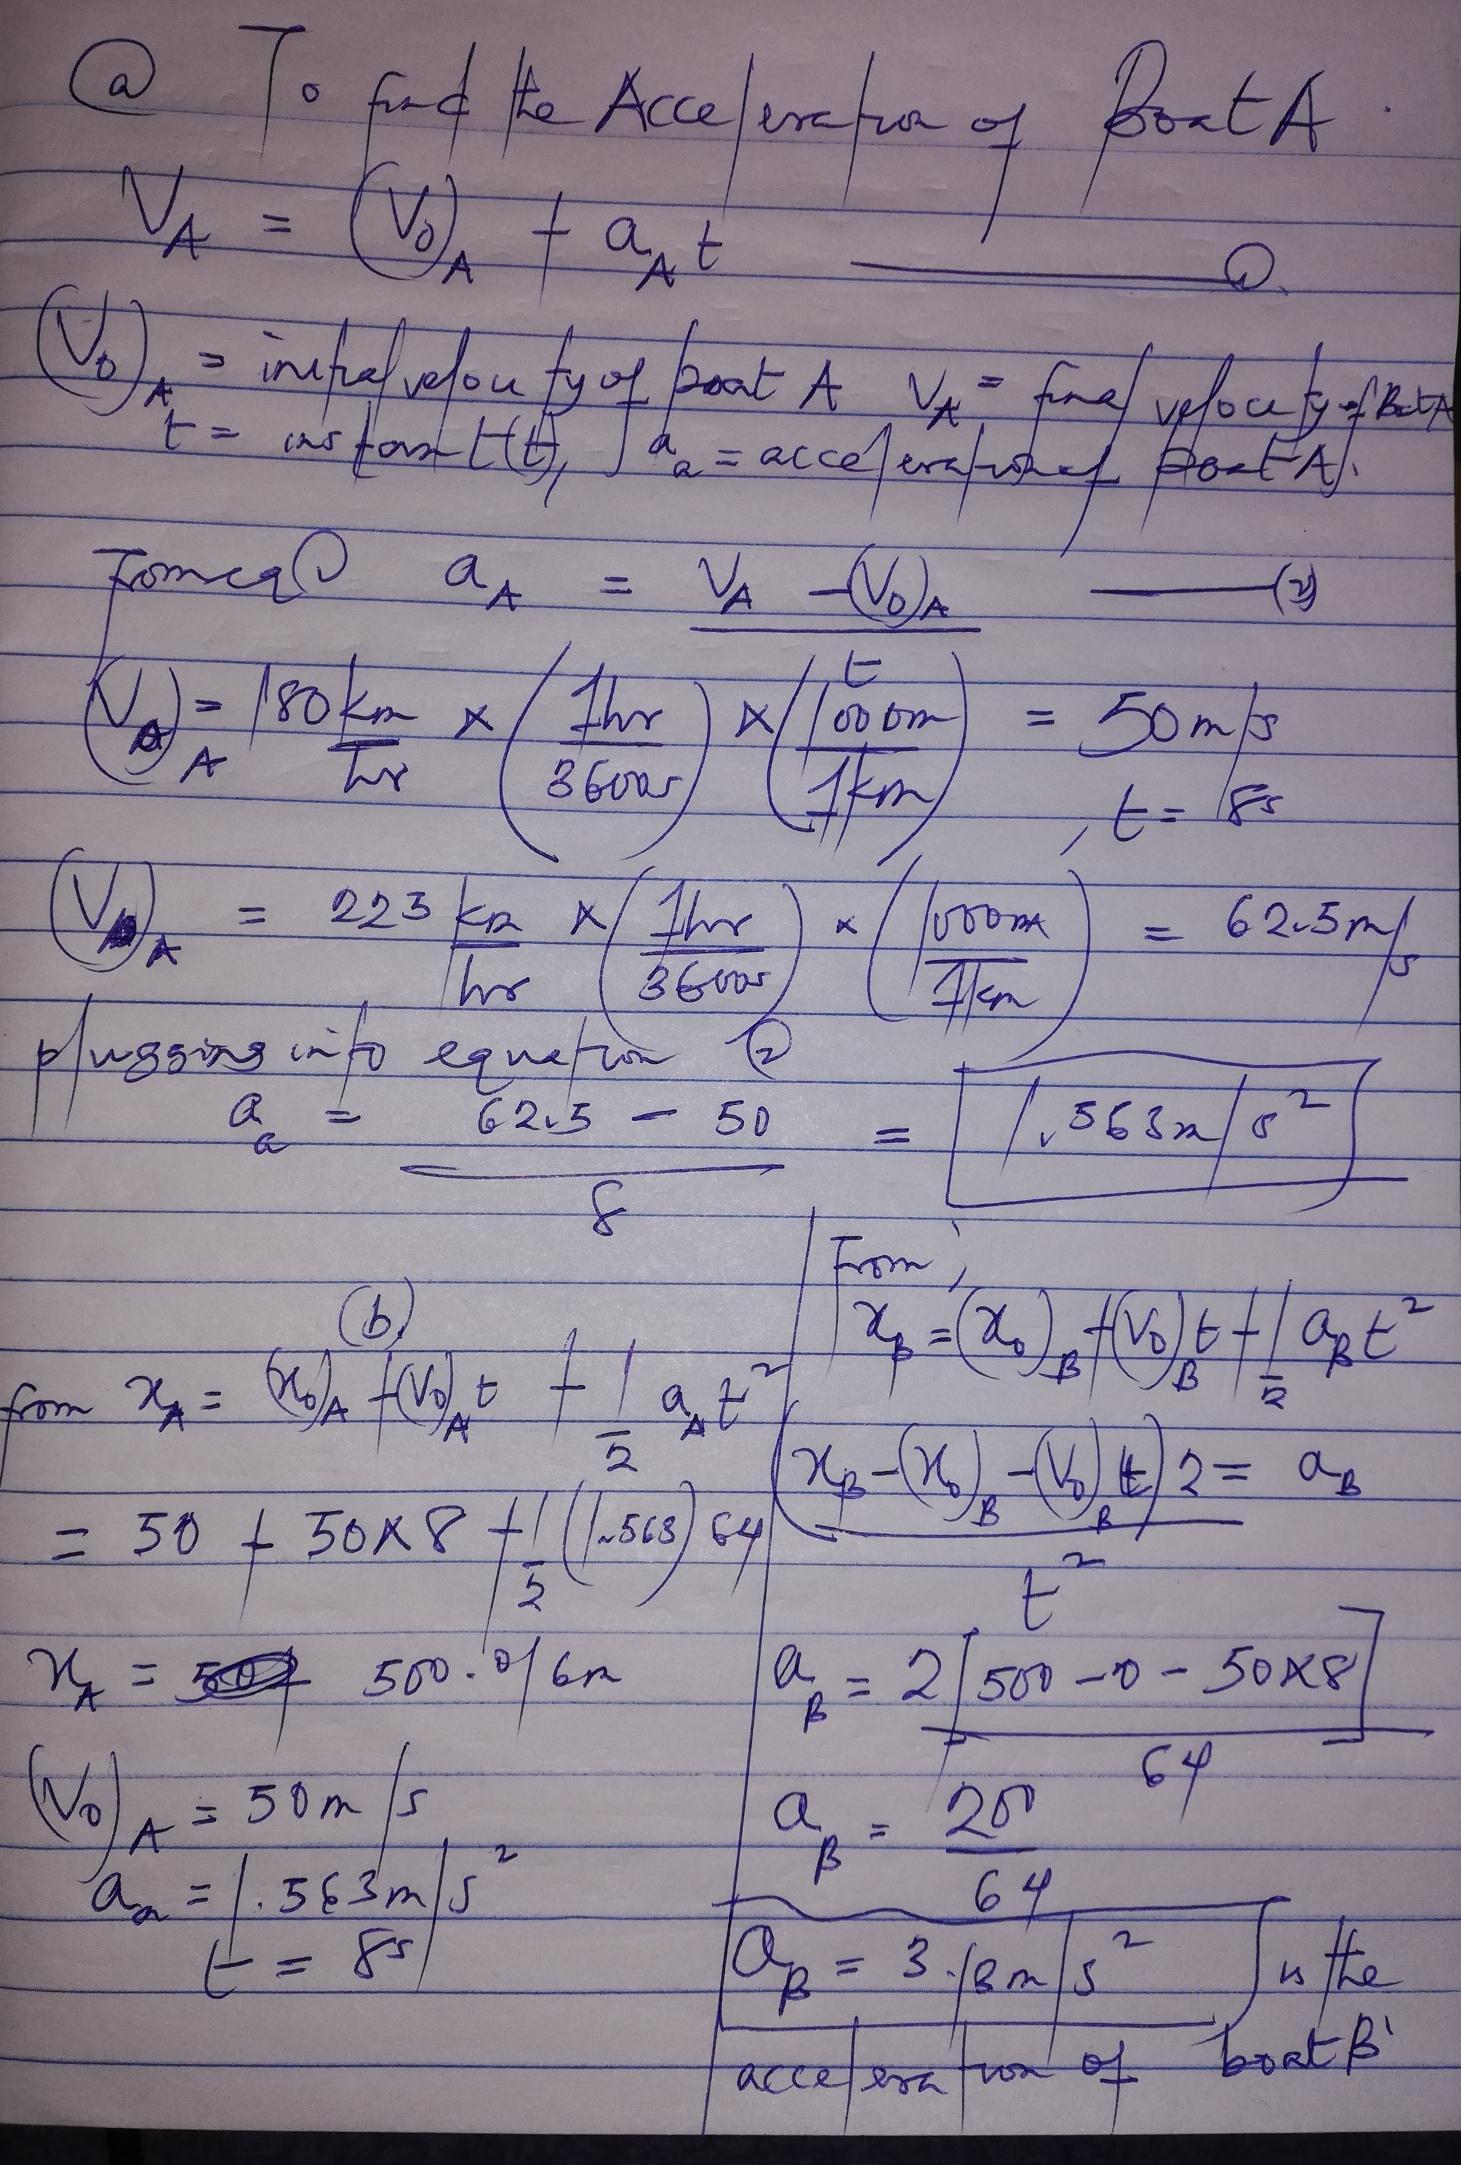 (a) To find the Acceleration of Boat A.
V_A = (V_0)_A + a_A t ——— (1)
(V_0)_A = initial velocity of boat A V_A = final velocity of Boat A
t = instant (t), a_a = acceleration of boat A.
From eq (1) a_A = (V_A - (V_0)_A) / t ——— (2)
(V_0)_A = 180 km/hr × (1hr/3600s) × (1000m/1km) = 50m/s
, t = 8s
(V)_A = 225 km/hr × (1hr/3600s) × (1000m/1km) = 62.5m/s
plugging into equation (2)
a_a = (62.5 - 50) / 8 = 1.563m/s²
(b)
from x_A = (x_0)_A + (V_0)_A t + 1/2 a_A t²
= 50 + 50×8 + 1/2 (1.563) 64
x_A = 500.016m
(V_0)_A = 50m/s
a_a = 1.563m/s²
t = 8s
From,
x_B = (x_0)_B + (V_0)_B t + 1/2 a_B t²
(x_B - (x_0)_B - (V_0)_B t) 2 / t² = a_B
a_B = 2[500 - 0 - 50×8] / 64
a_B = 200/64
a_B = 3.13m/s² is the
acceleration of boat B